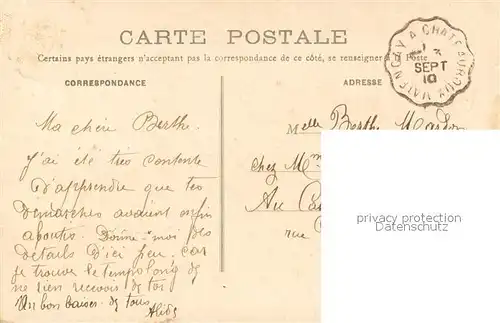 CARTE POSTALE
Certains pays étrangers n'acceptant pas la correspondance de ce côté, se renseigner à la Poste
CORRESPONDANCE
ADRESSE
VALENÇAY A CHATEAUROUX
SEPT
10
Ma chère Berthe.
J'ai été très contente
D'apprendre que tes
Démarches avaient enfin
abouties. Donne-moi des
details D'ici peu. car
je trouve le temps long de
ne rien recevoir de toi
Un bon baiser de tous
Melle Berthe
chez Mme
Au
rue
privacy protection
Datenschutz